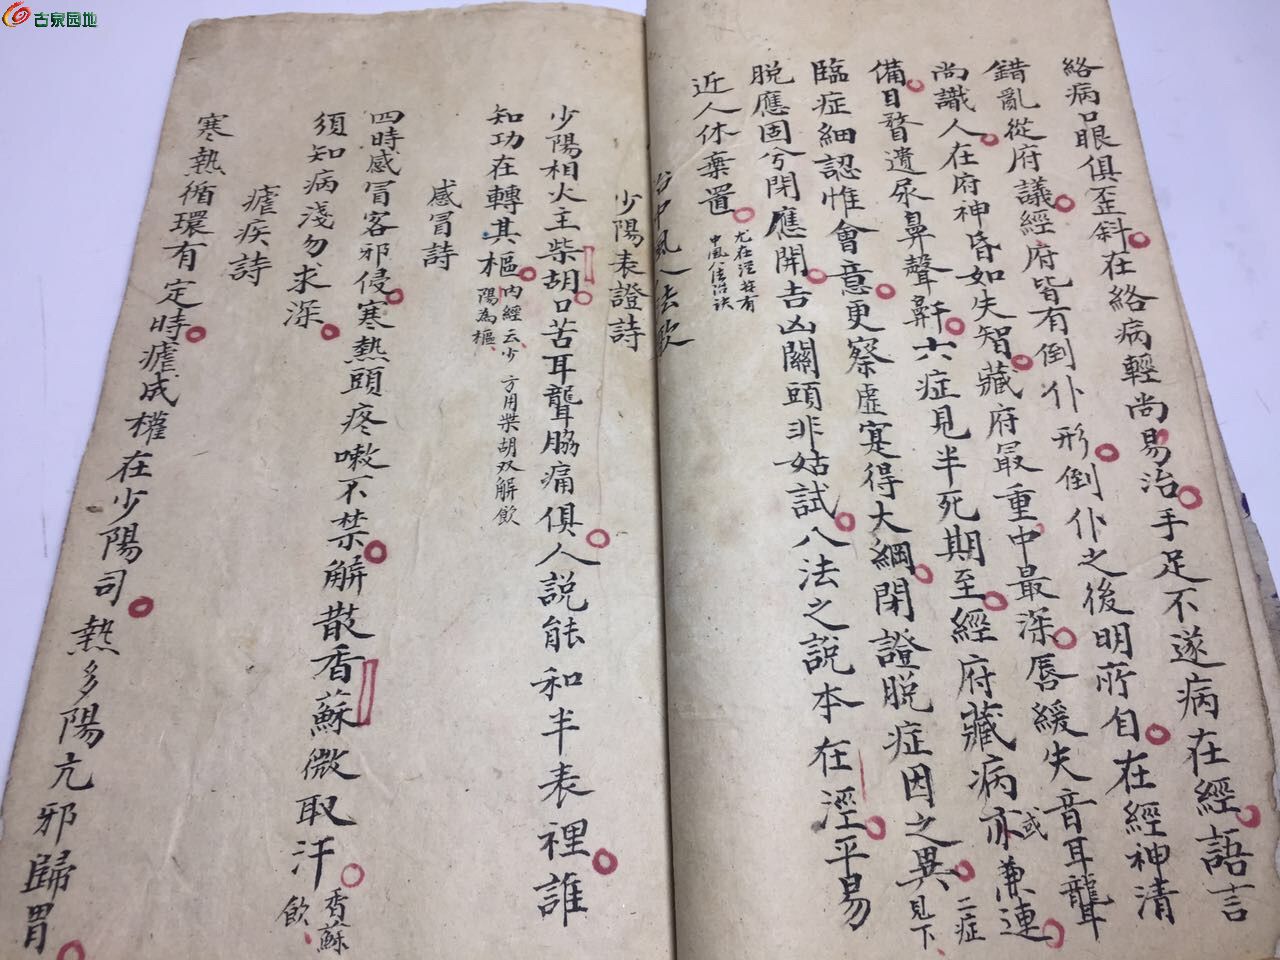 古泉园地
絡病口眼俱歪斜在絡病輕尚易治手足不遂病在經語言
錯亂從府議經府皆有倒仆形倒仆之後明所自在經神清
尚識人在府神昏如失智藏府最重中最深唇緩失音耳聾
備目瞀遺尿鼻聲鼾六症見半死期至經府藏病亦或兼連
臨症細認惟會意更察虛寔得大綱閉證脱症因之異二症見下
脱應固兮閉應開吉凶關頭非姑試八法之説本在涇平易
近人休棄置尤在涇註有中風八法治訣
少陽表證詩
少陽相火主柴胡口苦耳聾脇痛俱人説能和半表裡誰
知功在轉其樞內經云少陽為樞方用柴胡双解飲
感冒詩
四時感冒客邪侵寒熱頭疼嗽不禁解散香蘇微取汗香蘇飲
須知病淺勿求深
瘧疾詩
寒熱循環有定時瘧成權在少陽司熱多陽亢邪歸胃